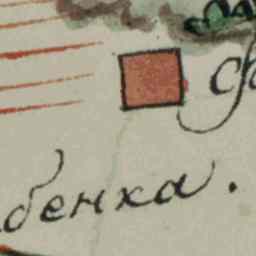 бенка.